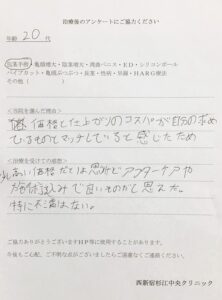 治療後のアンケートにご協力ください
年齢 20代
包茎手術・亀頭増大・陰茎増大・滑膜パニス・ED・シリコンボール
パイプカット・亀頭ぶつぶつ・長茎・性病・早漏・HARG療法
その他（　　）
<当院を選んだ理由>
価格と仕上がりのコスパが自分の求め
ているものとマッチしていると感じたため
<治療を受けての感想>
高い価格だとは思うが アフターケアや
施術込みで良いものだと思えた。
特に不満はない。
ご協力ありがとうございますHP等に使用することがあります。
今後もご心配、ご不明な点がございましたらご遠慮なくご連絡ください。
西新宿杉江中央クリニック